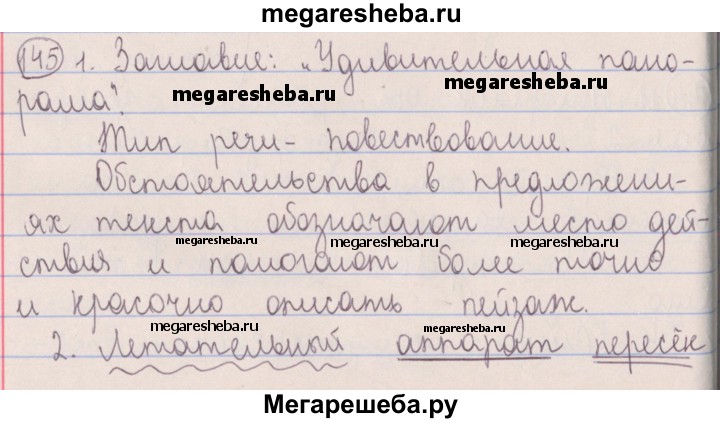 megaresheba.ru
145 1. Заглавие: „Удивительная пано-
megaresheba.ru
megaresheba.ru
рама".
Тип речи - повествование.
Обстоятельства в предложени-
ях текста обозначают место дей-
megaresheba.ru
megaresheba.ru
megaresheba.ru
ствия и помогают более точно
и красочно описать пейзаж.
megaresheba.ru
megaresheba.ru
2. Летательный аппарат пересёк
Мегарешеба.ру